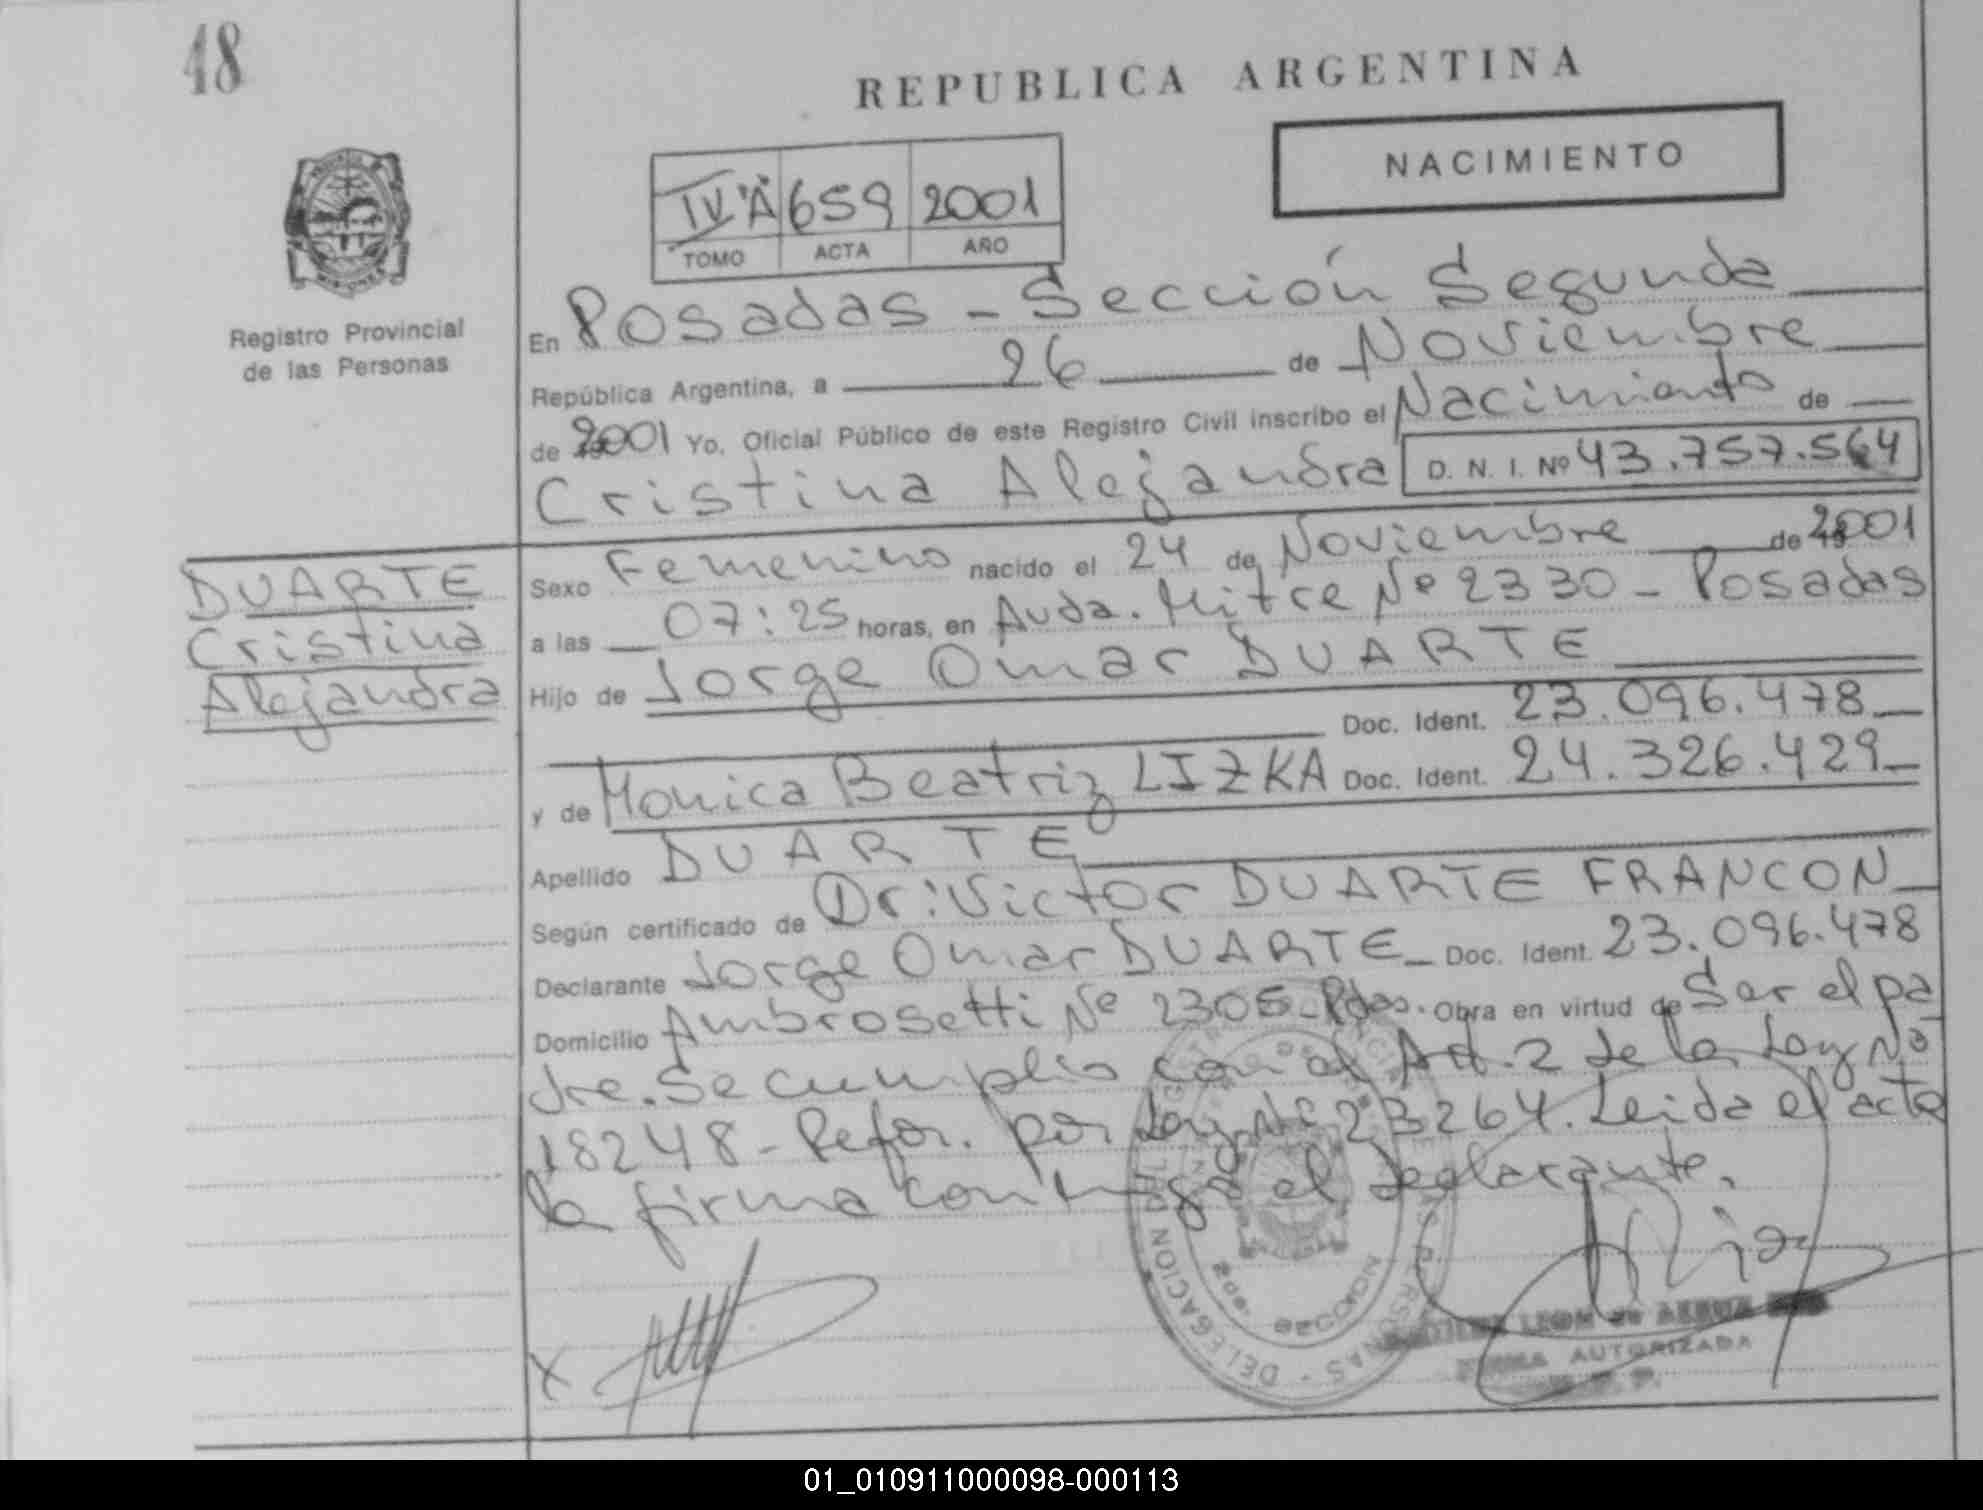 48
REPUBLICA ARGENTINA
NACIMIENTO
IV "A" 659 2001
TOMO ACTA AÑO
Registro Provincial
de las Personas
En Posadas - Sección Segunda
República Argentina, a 26 de Noviembre
de 2001 Yo, Oficial Público de este Registro Civil inscribo el Nacimiento de
Cristina Alejandra D. N. I. Nº 43.757.564
DUARTE
Cristina
Alejandra
Sexo Femenino nacido el 24 de Noviembre de 2001
a las 07:25 horas, en Avda. Mitre Nº 2330 - Posadas
Hijo de Jorge Omar DUARTE
Doc. Ident. 23.096.478
y de Monica Beatriz LIZKA Doc. Ident. 24.326.429
Apellido DUARTE
Según certificado de Dr: Victor DUARTE FRANCON
Declarante Jorge Omar DUARTE Doc. Ident. 23.096.478
Domicilio Ambrosetti Nº 2305 - Pdas. Obra en virtud de Ser el pa
dre. Se cumplio con el Art. 2 de la Ley Nº
18248 - Refor. por Ley Nº 23264. Leida el acta
la firma conmigo el declarante.
X
DELEGACION
2da. SECCION
LEON de
FIRMA AUTORIZADA
01_010911000098-000113